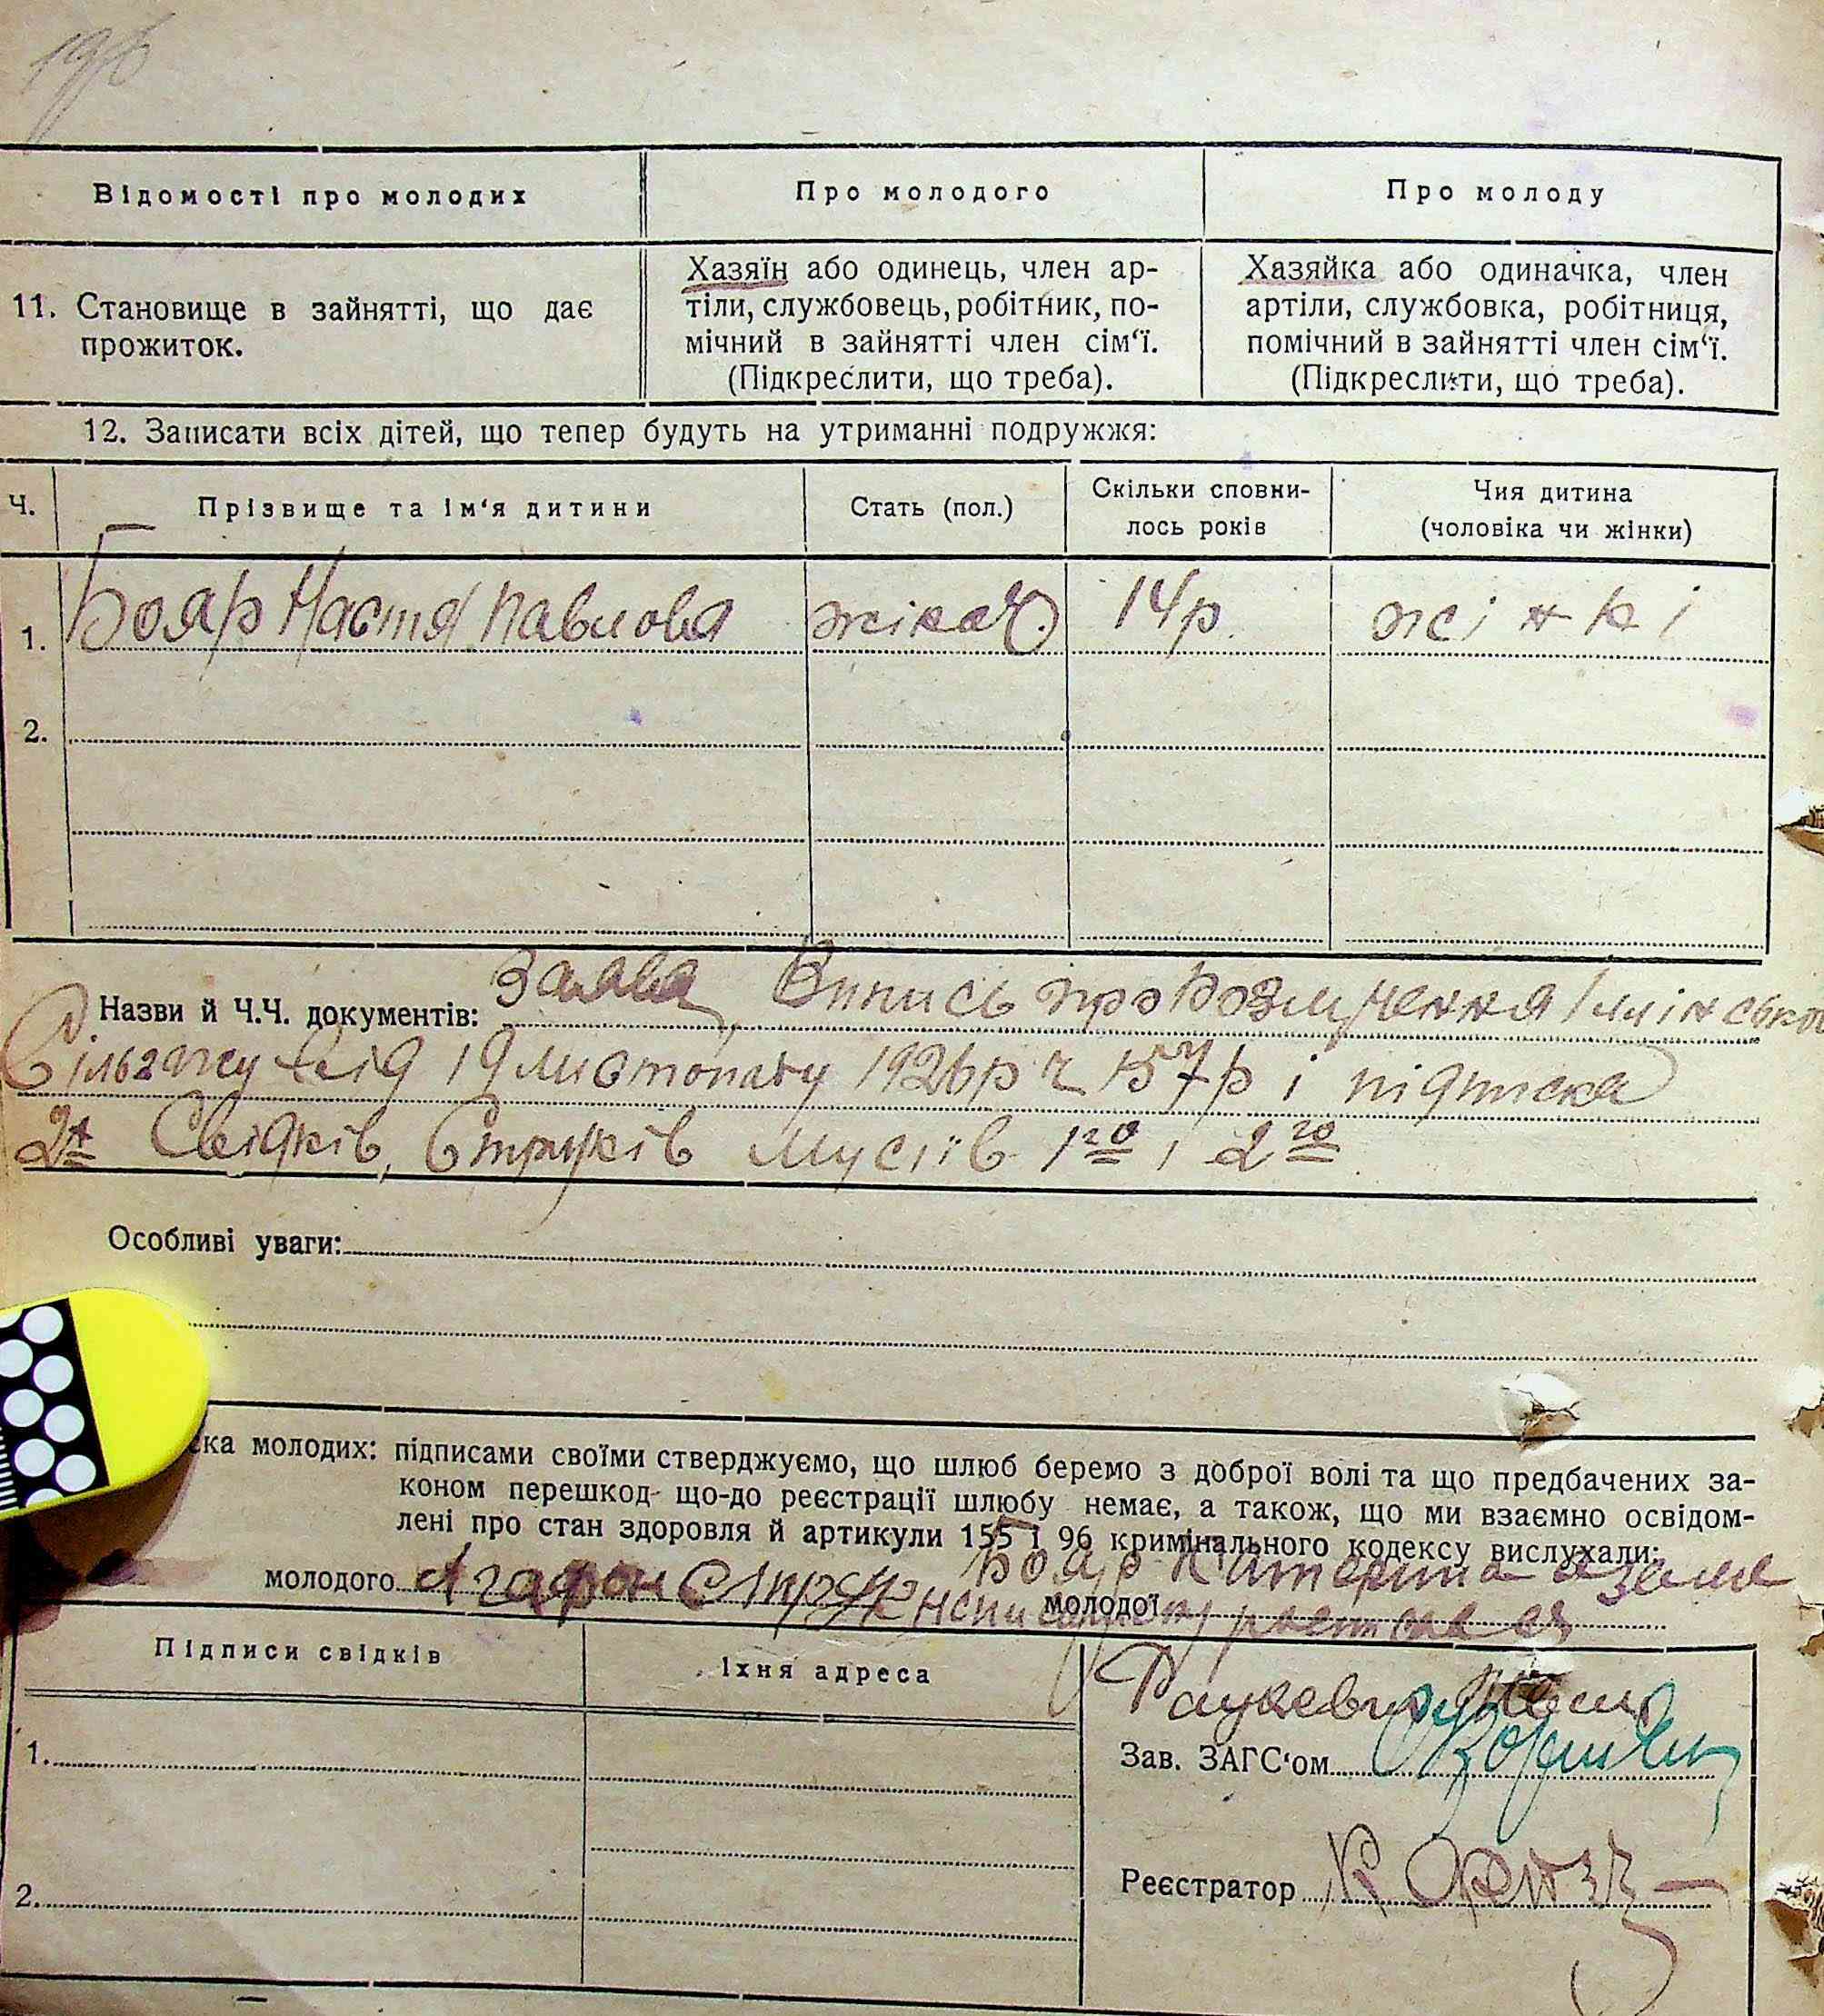 196
Відомості про молодих
Про молодого
Про молоду
11. Становище в зайнятті, що дає
прожиток.
Хазяїн або одинець, член ар-
тіли, службовець, робітник, по-
мічний в зайнятті член сім‘ї.
(Підкреслити, що треба).
Хазяйка або одиначка, член
артіли, службовка, робітниця,
помічний в зайнятті член сім‘ї.
(Підкреслити, що треба).
12. Записати всіх дітей, що тепер будуть на утриманні подружжя:
Ч.
Прізвище та ім‘я дитини
Стать (пол.)
Скільки сповни-
лось років
Чия дитина
(чоловіка чи жінки)
1. Бояр Настя Павлова
14р.
жінкі
2.
Назви й Ч.Ч. документів: Заява, Випись про
від 19 листопаду 1926р ч 157р і підписка
2х Свідків, Струків Мусіїв 1го і 2го
Особливі уваги:
ска молодих: підписами своїми стверджуємо, що шлюб беремо з доброї волі та що предбачених за-
коном перешкод що-до реєстрації шлюбу немає, а також, що ми взаємно освідом-
лені про стан здоровля й артикули 155 і 96 кримінального кодексу вислухали:
молодого Агафон Струк
Бояр Катерина а за неї
молодої
Підписи свідків
Їхня адреса
1.
Зав. ЗАГС‘ом
2.
Реєстратор